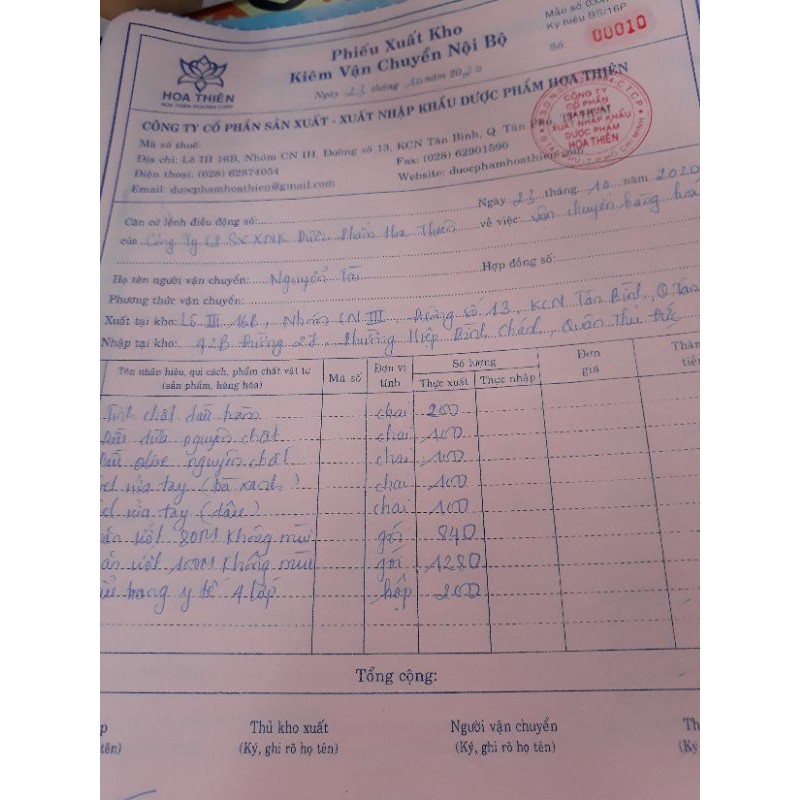 Mẫu số 03X
Ký hiệu BS/16P
Số: 00010
HOA THIÊN
Phiếu Xuất Kho
Kiêm Vận Chuyển Nội Bộ
Ngày 23 tháng 10 năm 2020
CÔNG TY CỔ PHẦN SẢN XUẤT - XUẤT NHẬP KHẨU DƯỢC PHẨM HOA THIÊN
Mã số thuế:
Địa chỉ: Lô III 16B, Nhóm CN III, Đường số 13, KCN Tân Bình, Q. Tân
Điện thoại: (028) 62874054 Fax: (028) 62901590
Email: duocphamhoathien@gmail.com Website: duocphamhoathien.com
CÔNG TY
CỔ PHẦN
SẢN XUẤT
XUẤT NHẬP KHẨU
DƯỢC PHẨM
HOA THIÊN
Căn cứ lệnh điều động số: Ngày 23 tháng 10 năm 2020
của Công Ty CP SX XNK Dược Phẩm Hoa Thiên về việc: vận chuyển hàng hoá
Họ tên người vận chuyển: Nguyễn Tài Hợp đồng số:
Phương thức vận chuyển:
Xuất tại kho: Lô III 16B, Nhóm CN III, Đường số 13, KCN Tân Bình, Q. Tân
Nhập tại kho: 42B Đường 27, Phường Hiệp Bình Chánh, Quận Thủ Đức
Tên nhãn hiệu, qui cách, phẩm chất vật tư (sản phẩm, hàng hóa) Mã số Đơn vị tính Số lượng Đơn giá Thàn tiền
Thực xuất Thực nhập
Tinh chất dầu tràm chai 200
dầu dừa nguyên chất chai 100
dầu olive nguyên chất chai 100
rửa tay (trà xanh) chai 100
rửa tay (dâu) chai 100
ướt 80M không mùi gói 840
ướt 100M không mùi gói 1280
trang y tế 4 lớp hộp 200
Tổng cộng:
Thủ kho xuất Người vận chuyển Th
tên) (Ký, ghi rõ họ tên) (Ký, ghi rõ họ tên) (Ký